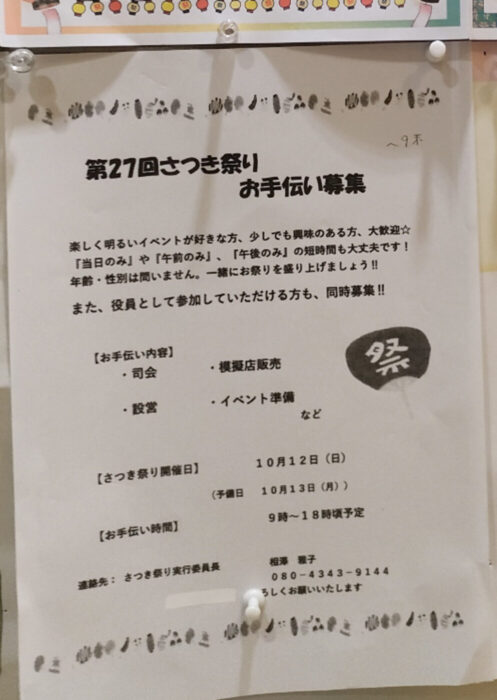 ~9末
第27回さつき祭り
お手伝い募集
楽しく明るいイベントが好きな方、少しでも興味のある方、大歓迎☆
『当日のみ』や『午前のみ』、『午後のみ』の短時間も大丈夫です！
年齢・性別は問いません。一緒にお祭りを盛り上げましょう‼
また、役員として参加していただける方も、同時募集‼
【お手伝い内容】
・司会 ・模擬店販売
・設営 ・イベント準備
など
祭
【さつき祭り開催日】 １０月１２日（日）
（予備日 １０月１３日（月））
【お手伝い時間】 ９時～１８時頃予定
連絡先： さつき祭り実行委員長 相澤 雅子
０８０－４３４３－９１４４
ろしくお願いいたします